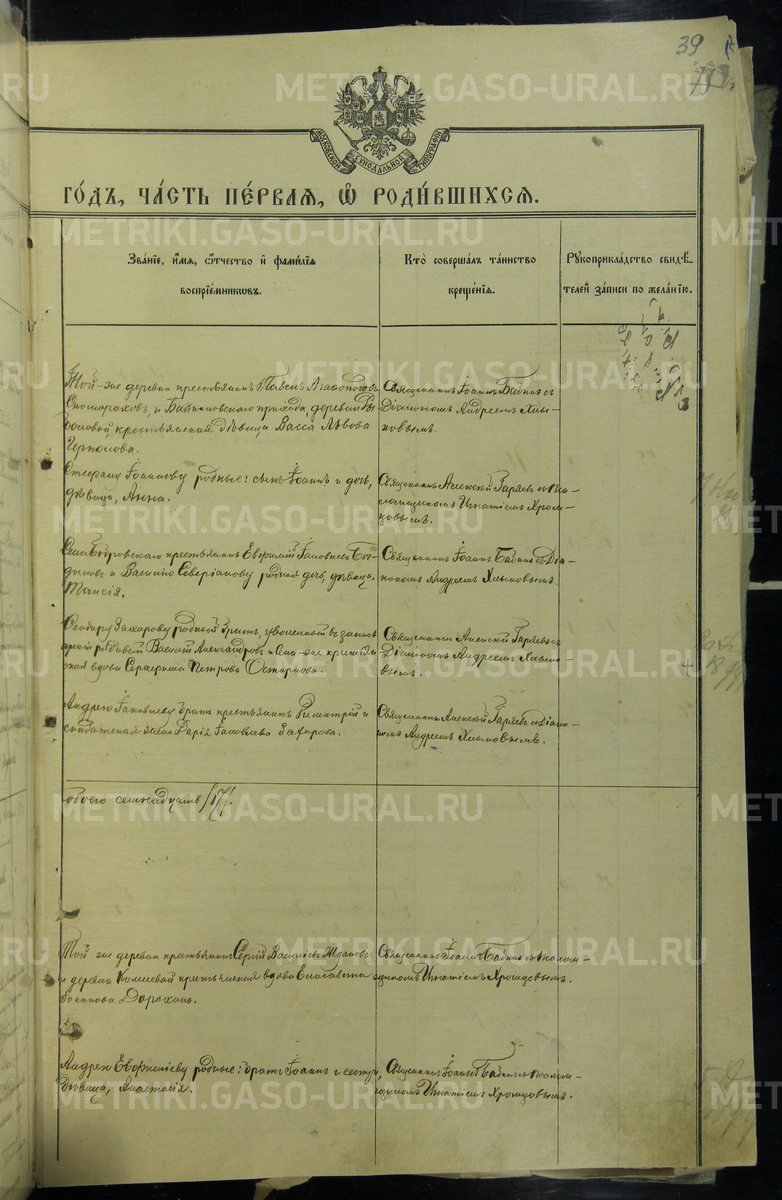 39
METRIKI.GASO-URAL.RU
МОСКОВСКОЙ СѴНОДАЛЬНОЙ ТИПОГРАФІИ
ГО́ДЪ, ЧА́СТЬ ПЕ́РВАЯ, Ѡ РОДИ́ВШИХСЯ.
Зва́нїе, и҆́мя, ѻ҆́тчество и҆ фами́лїя
воспрїе́мникѡвъ.
Кто̀ соверша́лъ та́инство
креще́нїя.
Рꙋкоприкла́дство свидѣ́-
телей за́писи по жела́нїю.
Той-же деревни крестьянинъ Павелъ Агафоновъ
и Байновскаго прихода, деревни
крестьянская дѣвица Васса Львова
Священникъ Іоаннъ Байновъ съ
Діакономъ Андреемъ Хлы-
новымъ.
Стефану Іоаннову родные: сынъ Іоаннъ и дочь,
дѣвица, Анна.
Священникъ Алексій Гаряевъ съ Пса-
ломщикомъ Игнатіемъ Хром-
цовымъ.
крестьянинъ Евфимій Іаковлевъ
и Василію Северіанову родная дочь, дѣвица,
Таисія.
Священникъ Іоаннъ Байновъ съ Діа-
кономъ Андреемъ Хлыновымъ.
Ѳеодору Захарову родный братъ, уволенный въ запасъ
рядовой Василій Александровъ и
вдова Серафима Петрова
Священникъ Алексій Гаряевъ съ
Діакономъ Андреемъ Хлыно-
вымъ.
Андрею Іаковлеву братъ крестьянинъ Димитрій и
солдатская жена Дарія Іаковлева Захарова.
Священникъ Алексій Гаряевъ съ Діако-
номъ Андреемъ Хлыновымъ.
обоего семнадцать /17/.
Той же деревни крестьянинъ Сергій Васильевъ Ждановъ
и деревни крестьянская вдова Елисавета
Дорохина.
Священникъ Іоаннъ Байновъ съ Псалом-
щикомъ Игнатіемъ Хромцовымъ.
Андрею Евфиміеву родные: братъ Іоаннъ и сестра,
дѣвица, Анастасія.
Священникъ Іоаннъ Байновъ съ Псалом-
щикомъ Игнатіемъ Хромцовымъ.